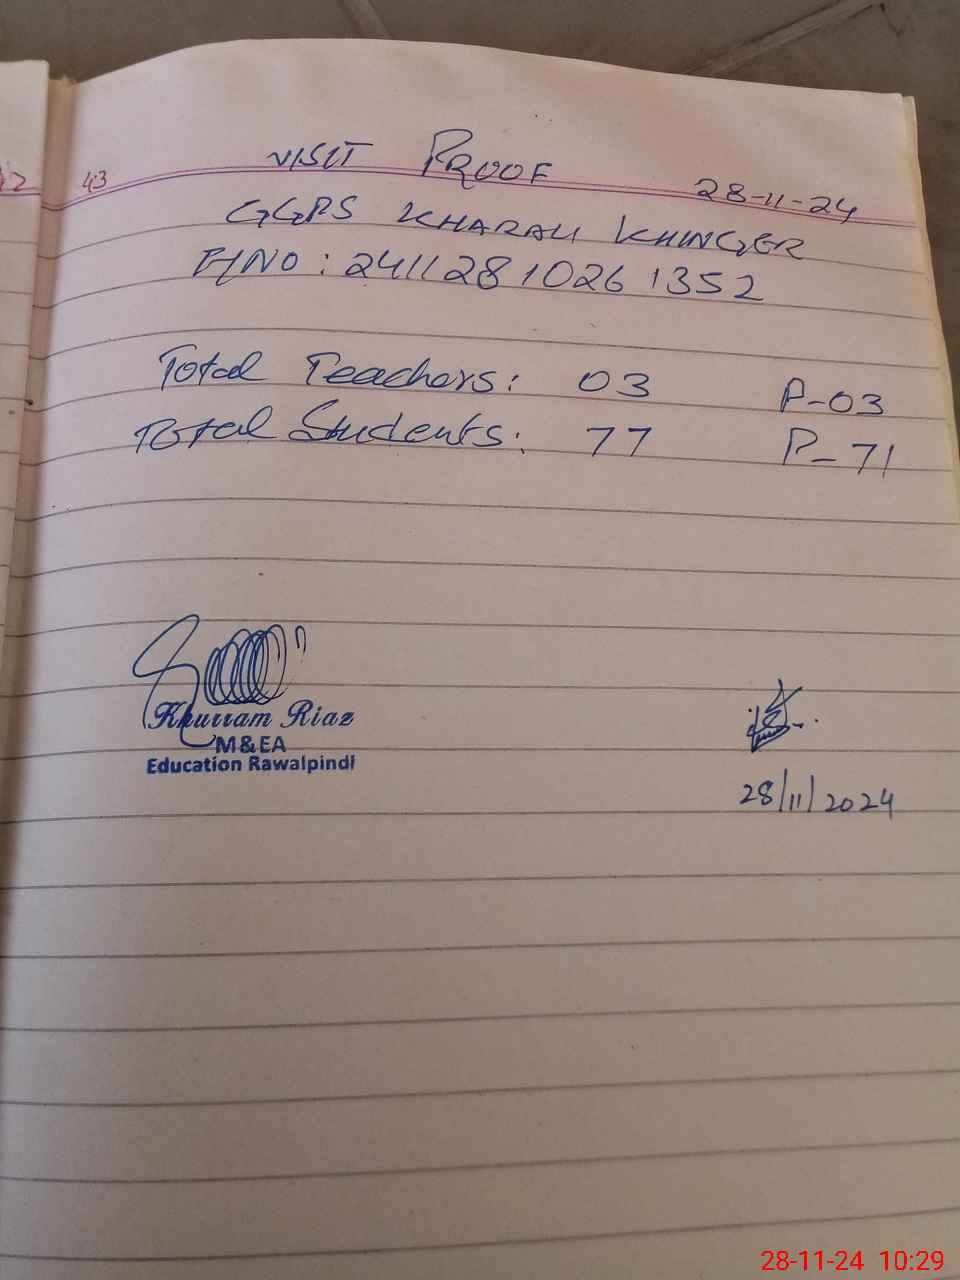 43
VISIT PROOF
28-11-24
GGPS KHARALI KHINGER
P/NO : 2411281026 1352
Total Teachers: 03 P-03
Total Students: 77 P-71
Khurram Riaz
M&EA
Education Rawalpindi
28/11/2024
28-11-24 10:29